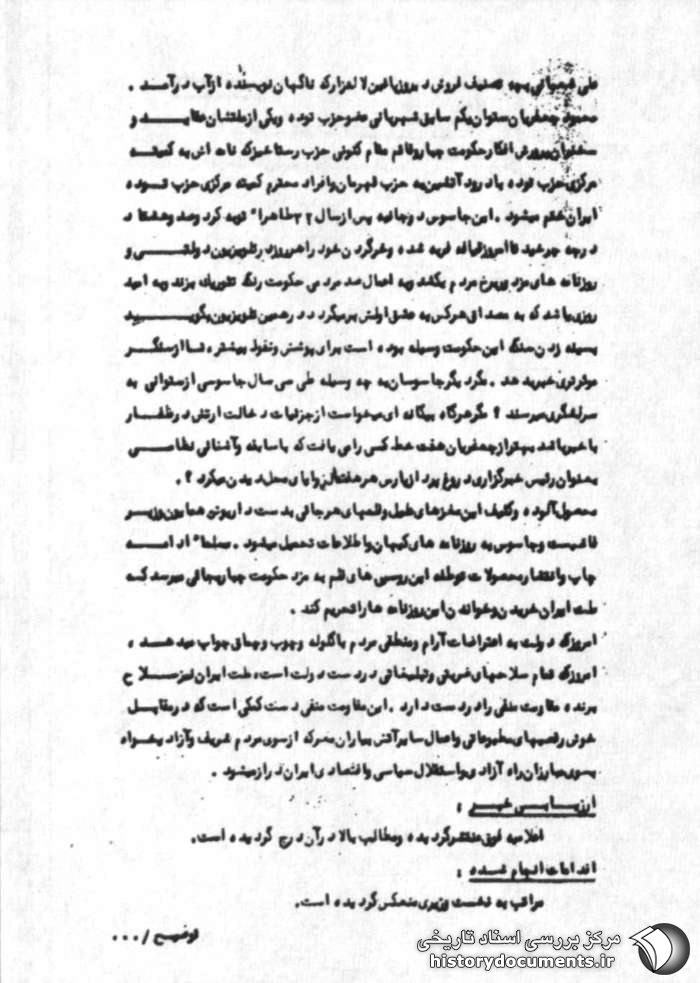 علی شعبانی بچه تصنیف فروش دیروز پائین لاله‌زار که ناگهان نویسنده از آب درآمد .
محمود جعفریان ستوان یکم سابق شهربانی عضو حزب توده و یکی از مفتشان عقاید و
پرورش افکار حکومت جبار و قائم مقام کنونی حزب رستاخیز که نامه‌اش به کمیته
مرکزی حزب توده با درود آتشین به حزب قهرمان و افراد محترم کمیته مرکزی حزب توده
ایران ختم میشود . این جاسوس دوجانبه پس از سال ۳۲ ظاهراً توبه کرد و صد و هشتاد
درجه چرخید تا امروز قیافه فربه شده و خرگردن خود را هر روز در تلویزیون دولتی و
روزنامه های مزدور برخ مردم بکشد و به اعمال ضد مردمی حکومت رنگ تئوریک بزند و به امید
روزی باشد که به مصداق هرکس به عشق اولش برمیگردد در همین تلویزیون بگوید
بسینه زدن سنگ این حکومت وسیله بوده است برای پوشش و نفوذ بیشتر ، تا از سنگر
موثرتری خبر بدهد . مگر دیگر جاسوسان به چه وسیله طی سی سال جاسوسی از ستوانی به
سرلشگری میرسند ؟ مگر هرگاه بیگانه ای میخواست از جزئیات دخالت ارتش در ظفار
با خبر باشد بهتر از جعفریان هفت خط کسی را می یافت که با سابقه و آشنائی نظامی
بعنوان رئیس خبرگزاری دروغ پرداز پارس هر هفته از زوایای محل دیدن میکرد ؟ .
محصول آلوده و کثیف این مغزهای علیل و قلمهای هرجائی بدست داریوش همایون وزیر
فاشیست و جاسوس به روزنامه های کیهان و اطلاعات تحمیل میشود . مسلماً ادامه
چاپ و انتشار محصولات توطئه این روسپی های قلم به مزد حکومت جبار بجائی میرسد که
ملت ایران خریدن و خواندن این روزنامه ها را تحریم کند .
امروز که دولت به اعتراضات آرام و منطقی مردم با گلوله و چوب و چماق جواب میدهد ،
امروز که تمام سلاحهای ضربتی و تبلیغاتی در دست دولت است ، ملت ایران نیز سلاح
برنده مقاومت منفی را در دست دارد . این مقاومت منفی دست کمکی است که در مقابل
خوش رقصیهای مطبوعاتی و اعمال سایر آتش بیاران معرکه از سوی مردم شریف و آزادیخواه
بسوی مبارزان راه آزادی و استقلال سیاسی و اقتصادی ایران دراز میشود .
ارزیابی خبر :
اعلامیه فوق منتشر گردیده و مطالب بالا در آن درج گردیده است.
اقدامات انجام شده :
مراتب به نخست وزیری منعکس گردیده است.
توضیح / ۰۰۰
مرکز بررسی اسناد تاریخی
historydocuments.ir